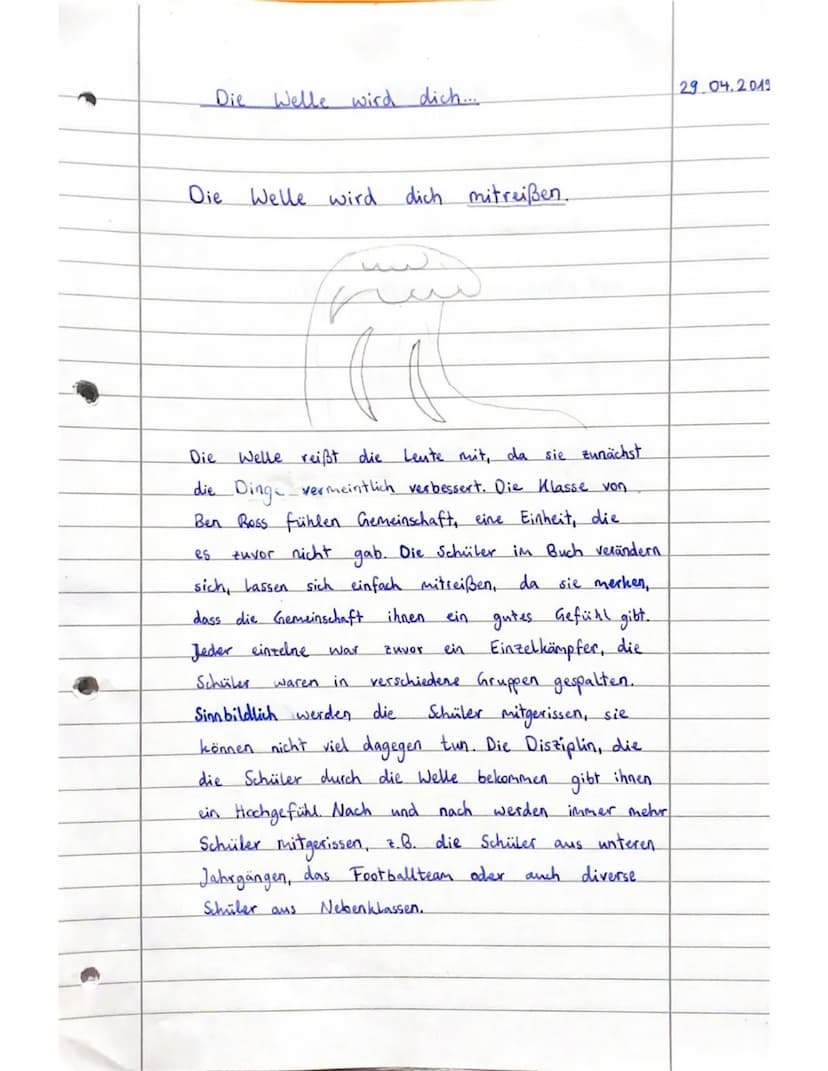 29.04.2019
Die Welle wird dich...
Die Welle wird dich mitreißen.
Die Welle reißt die Leute mit, da sie zunächst
die Dinge vermeintlich verbessert. Die Klasse von
Ben Ross fühlen Gemeinschaft, eine Einheit, die
es zuvor nicht gab. Die Schüler im Buch verändern
sich, lassen sich einfach mitreißen, da sie merken,
dass die Gemeinschaft ihnen ein gutes Gefühl gibt.
Jeder einzelne war zuvor ein Einzelkämpfer, die
Schüler waren in verschiedene Gruppen gespalten.
Sinnbildlich werden die Schüler mitgerissen, sie
können nicht viel dagegen tun. Die Disziplin, die
die Schüler durch die Welle bekommen gibt ihnen
ein Hochgefühl. Nach und nach werden immer mehr
Schüler mitgerissen, z.B. die Schüler aus unteren
Jahrgängen, das Footballteam oder auch diverse
Schüler aus Nebenklassen.